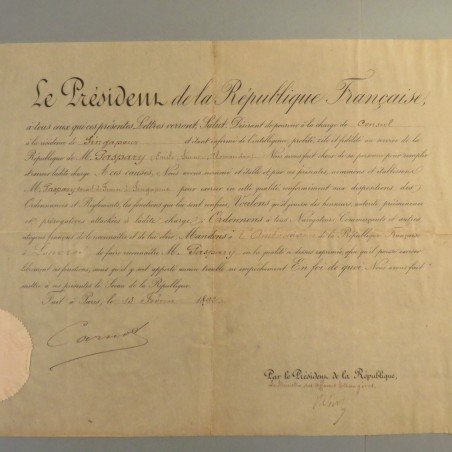 Le Président de la République Française,
à tous ceux que ces présentes Lettres verront, Salut. Devant de pourvoir à la charge de Consul
à la résidence de Singapour et étant informé de l'intelligence, probité, zèle et fidélité au service de la
République de M. Nous avons fait choix de sa personne pour remplir
A ces causes, Nous avons commis et établi et par ces présentes, commettons et établissons
M. à Singapour pour exercer en cette qualité, conformément aux dispositions des
Ordonnances et Règlements, les fonctions qui lui sont confiées. Voulons qu'il jouisse des honneurs, autorité, prééminences
et prérogatives attachées à ladite charge. Ordonnons à tous Navigateurs, Commerçants et autres
citoyens français de le reconnaître et de lui obéir. Mandons à l'Ambassadeur de la République Française
à Londres de faire reconnaître M. en la qualité ci-dessus exprimée afin qu'il puisse exercer
librement ses fonctions, sans qu'il y soit apporté aucun trouble ou empêchement. En foi de quoi, Nous avons fait
mettre à ces présentes le Sceau de la République.
Fait à Paris, le Février
Carnot
Par le Président de la République,
Le Ministre des Affaires Etrangères,